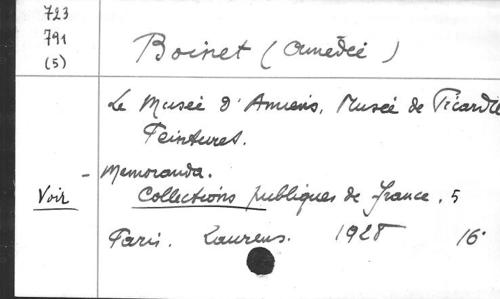 723
791
(5)
Boinet (Amédée)
Le Musée d'Amiens, Musée de Picardie
Peintures.
- Memoranda.
Voir Collections publiques de France. 5
Paris. Laurens. 1928 16°